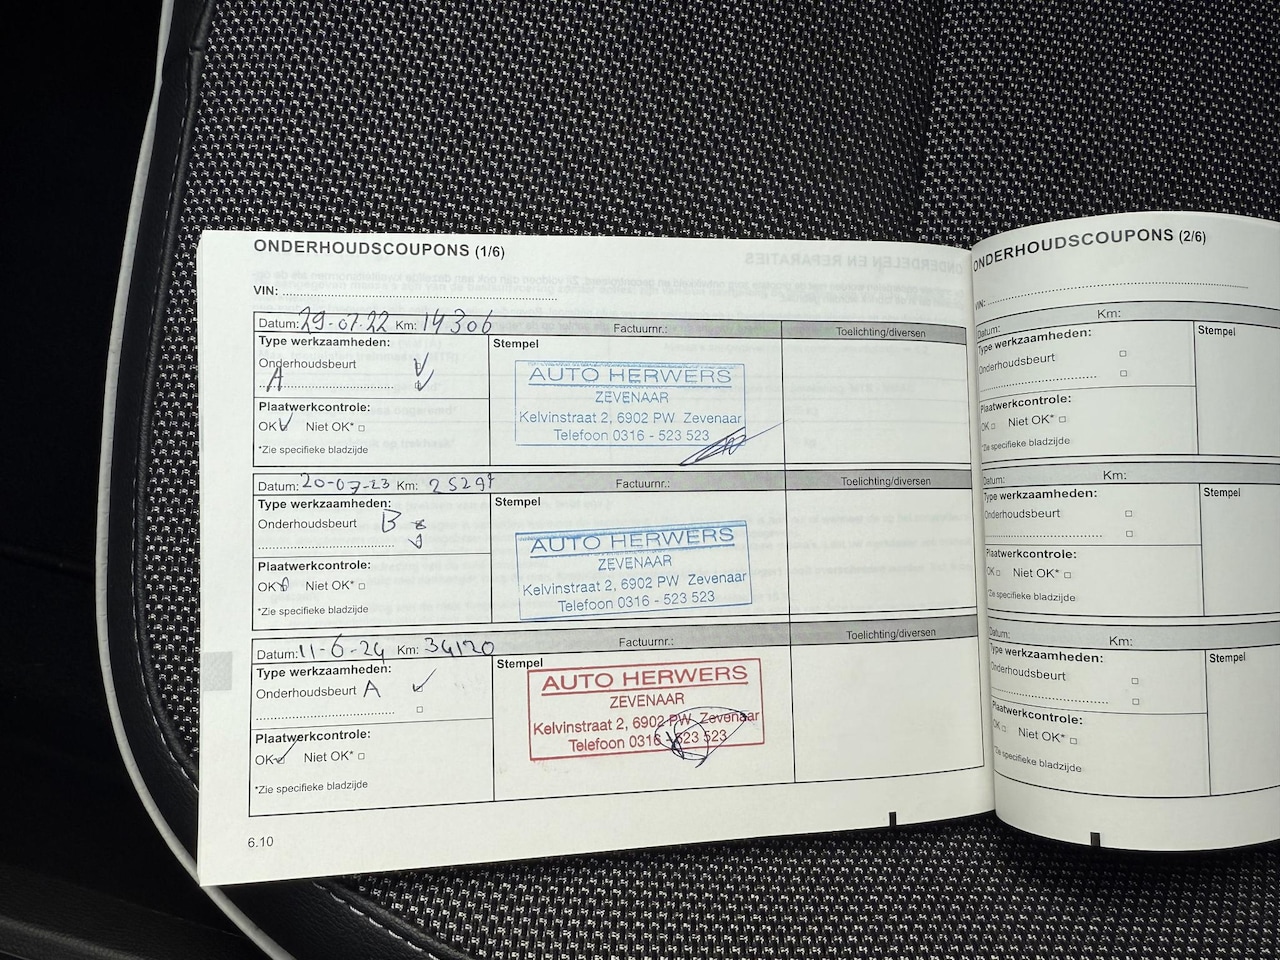 ONDERHOUDSCOUPONS (1/6)
VIN:
Datum: 29-07-22 Km: 14306 Factuurnr.: Toelichting/diversen
Type werkzaamheden: Stempel
Onderhoudsbeurt
A
Plaatwerkcontrole:
OK Niet OK*
*Zie specifieke bladzijde
AUTO HERWERS
ZEVENAAR
Kelvinstraat 2, 6902 PW Zevenaar
Telefoon 0316 - 523 523
Datum: 20-07-23 Km: 25297 Factuurnr.: Toelichting/diversen
Type werkzaamheden: Stempel
Onderhoudsbeurt B
Plaatwerkcontrole:
OK Niet OK*
*Zie specifieke bladzijde
AUTO HERWERS
ZEVENAAR
Kelvinstraat 2, 6902 PW Zevenaar
Telefoon 0316 - 523 523
Datum: 11-6-24 Km: 34120 Factuurnr.: Toelichting/diversen
Type werkzaamheden: Stempel
Onderhoudsbeurt A
Plaatwerkcontrole:
OK Niet OK*
*Zie specifieke bladzijde
AUTO HERWERS
ZEVENAAR
Kelvinstraat 2, 6902 PW Zevenaar
Telefoon 0316 - 523 523
6.10
ONDERHOUDSCOUPONS (2/6)
VIN:
Datum: Km:
Type werkzaamheden: Stempel
Onderhoudsbeurt
Plaatwerkcontrole:
OK Niet OK*
*Zie specifieke bladzijde
Datum: Km:
Type werkzaamheden: Stempel
Onderhoudsbeurt
Plaatwerkcontrole:
OK Niet OK*
*Zie specifieke bladzijde
Datum: Km:
Type werkzaamheden: Stempel
Onderhoudsbeurt
Plaatwerkcontrole:
OK Niet OK*
*Zie specifieke bladzijde